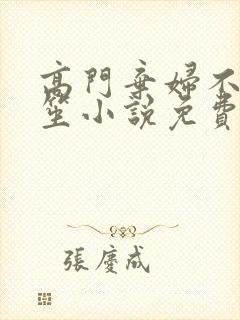 高門棄婦不
笙小說免費
張慶成